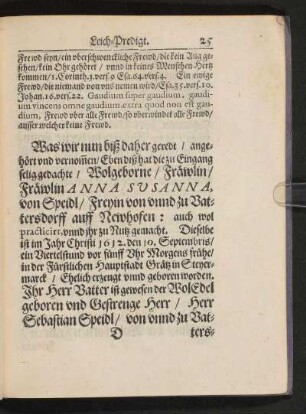 Leich-Predigt. 25
Frewd seyn/ ein uberschwenckliche Frewd/ die kein Aug ge-
sehen/ kein Ohr gehöret / vnnd in keines Menschen Hertz
kommen/ 1. Corinth. 2. vers. 9 Esa. 64. vers. 4. Ein ewige
Frewd/ die niemand von vns nemen wird/ Esa. 35. vers. 10.
Johan. 16. vers. 22. Gaudium super gaudium, gaudi-
um vincens omne gaudium, extra quod non est gau-
dium, Frewd vber alle Frewd/ so vberwindet alle Frewd/
ausser welcher keine Frewd.
Was wir nun biß daher geredt / ange-
hört vnd vernom̃en/ Eben diß hat die zu Eingang
selig gedachte / Wolgeborne / Fräwlin/
Fräwlin ANNA SUSANNA,
von Speidl/ Freyin von vnnd zu Vat-
tersdorff auff Newhofen: auch wol
practiciert, vnnd jhr zu Nutz gemacht. Dieselbe
ist im Jahr Christi 1612. den 10. Septembris/
ein Viertelstund vor fünff Uhr Morgens frühe/
in der Fürstlichen Hauptstadt Grätz in Steyer-
marck / Ehelich erzeugt vnnd geboren worden.
Ihr Herr Vatter ist gewesen der WolEdel
geboren vnd Gestrenge Herr / Herr
Sebastian Speidl/ von vnnd zu Vat-
D ters-